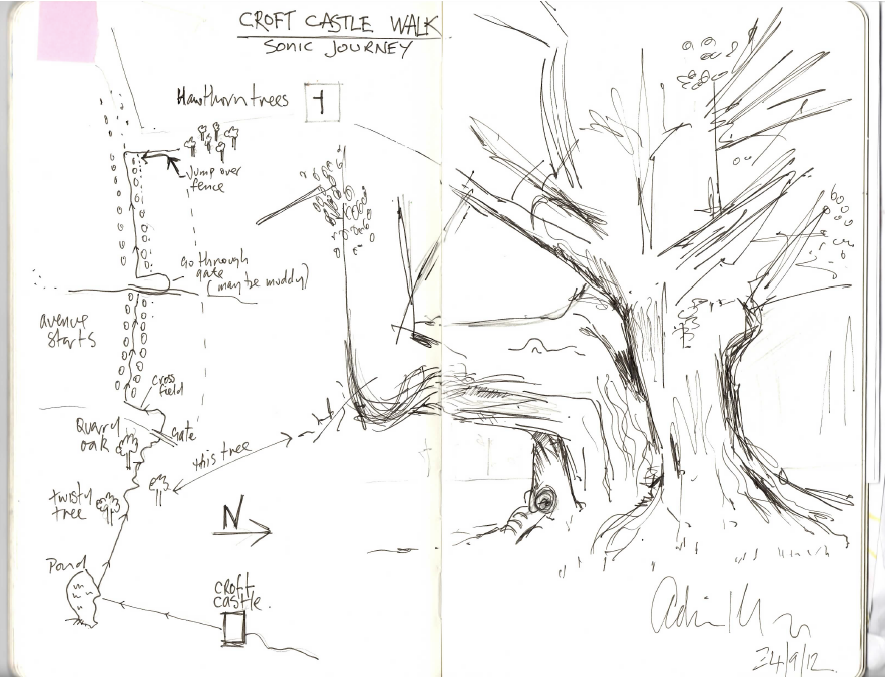 CROFT CASTLE WALK
SONIC JOURNEY
Hawthorn trees
1
Jump over
fence
Go through
gate
(may be muddy)
avenue
starts
cross
field
Quarry
oak
Gate
this tree
twisty
tree
N
Pond
CROFT
CASTLE.
24/9/12